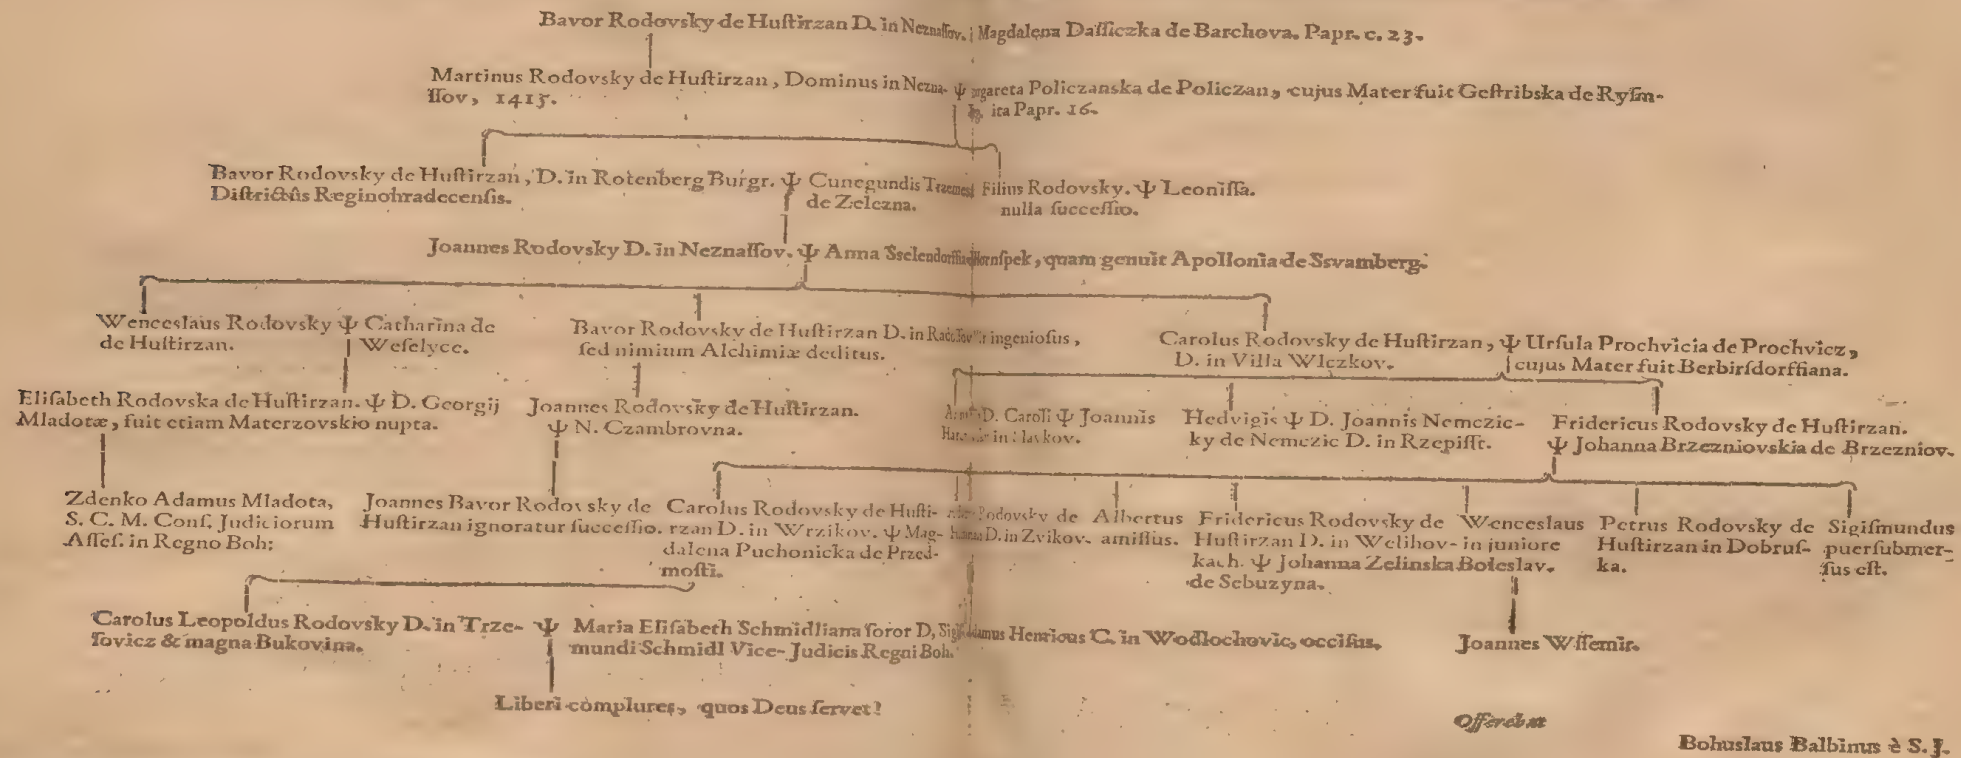 Bavor Rodovsky de Huſtirzan D. in Neznaſſov. Magdalena Daſſiczka de Barchova. Papr. c. 23.
Martinus Rodovsky de Huſtirzan, Dominus in Nezna- Ψ argareta Policzanska de Policzan, cujus Mater fuit Geſtribska de Ryſm-
ſſov, 1415. ita Papr. 16.
Bavor Rodovsky de Huſtirzan, D. in Rotenberg Burgr. Ψ Cunegundis
Diſtrictûs Reginohradecenſis. de Zelezna.
Filius Rodovsky. Ψ Leoniſſa.
nulla ſucceſſio.
Joannes Rodovsky D. in Neznaſſov. Ψ Anna Hornſpek, quam genuit Apollonia de Ssvamberg.
Wenceslaus Rodovsky Ψ Catharina de
de Huſtirzan. Weſelyce.
Bavor Rodovsky de Huſtirzan D. in ingenioſus,
ſed nimium Alchimiæ deditus.
Carolus Rodovsky de Huſtirzan, Ψ Urſula Prochvicia de Prochvicz,
D. in Villa Wlczkov. cujus Mater fuit Berbirſdorffiana.
Eliſabeth Rodovska de Huſtirzan. Ψ D. Georgij
Mladotæ, fuit etiam Materzovskio nupta.
Joannes Rodovsky de Huſtirzan.
Ψ N. Czambrovna.
D. Caroli Ψ Joannis
in
Hedvigis Ψ D. Joannis Nemczic-
ky de Nemczic D. in Rzepiſſt.
Fridericus Rodovsky de Huſtirzan.
Ψ Johanna Brzezniovskia de Brzezniov.
Zdenko Adamus Mladota,
S. C. M. Conſ. Judiciorum
Aſſeſ. in Regno Boh:
Joannes Bavor Rodovsky de
Huſtirzan ignoratur ſucceſſio.
Carolus Rodovsky de Huſti-
rzan D. in Wrzikov. Ψ Mag-
dalena Puchonicka de Przed-
moſti.
Rodovsky de
D. in Zvikov.
Albertus
amiſſus.
Fridericus Rodovsky de
Huſtirzan D. in Welihov-
kach. Ψ Johanna Zelinska
de Sebuzyna.
Wenceslaus
in juniore
Boleslav.
Petrus Rodovsky de
Huſtirzan in Dobruſ-
ka.
Sigiſmundus
puer ſubmer-
ſus eſt.
Carolus Leopoldus Rodovsky D. in Trze- Ψ Maria Eliſabeth Schmidliana ſoror D, Sigiſ-
ſovicz & magna Bukovina. mundi Schmidl Vice-Judicis Regni Boh.
Adamus Henricus C. in Wodlochovic, occiſus.
Joannes Wſſemir.
Liberi complures, quos Deus ſervet!
Offerebat
Bohuslaus Balbinus è S. J.